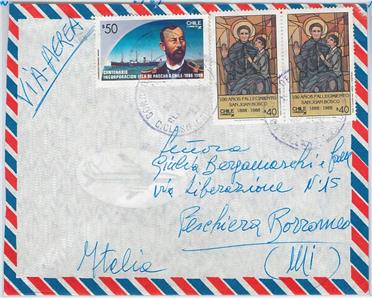 VIA AEREA
$50
CHILE
CORREOS
CENTENARIO
INCORPORACION ISLA DE PASCUA A CHILE 1888-1988
100 AÑOS FALLECIMIENTO
SAN JUAN BOSCO
1888 - 1988
CHILE $40
100 AÑOS FALLECIMIENTO
SAN JUAN BOSCO
1888 - 1988
CHILE $40
Señora
Giulia Bergamaschi e
via Liberazione N°15
Peschiera Borromeo
Italia (Mi)